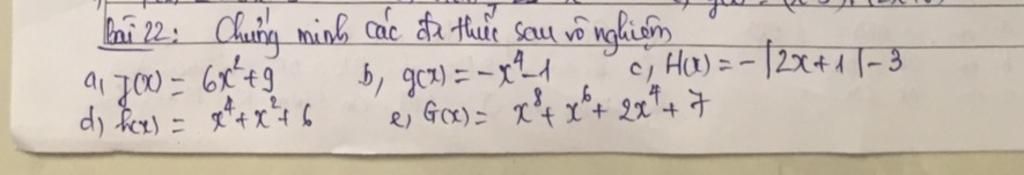 Bài 22: Chứng minh các đa thức sau vô nghiệm
a, f(x) = 6x²+9 b, g(x) = -x⁴-1 c, H(x) = -|2x+1|-3
d) h(x) = x⁴+x²+6 e, G(x) = x⁸+x⁶+2x⁴+7